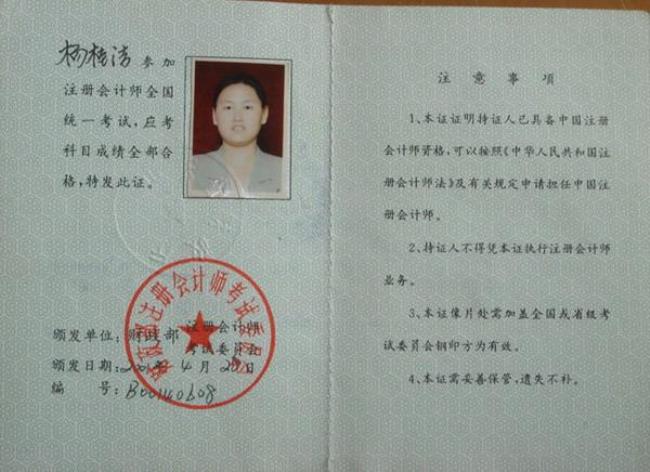 杨桂洁 参加
注册会计师全国
统一考试,应考
科目成绩全部合
格,特发此证。
财政部注册会计师考试委员会
颁发单位:财政部 注册会计师
考试委员会
颁发日期: 年4月 日
编 号:
注意事项
1、本证证明持证人已具备中国注册
会计师资格,可以按照《中华人民共和国注
册会计师法》及有关规定申请担任中国注
册会计师。
2、持证人不得凭本证执行注册会计师
业务。
3、本证像片处需加盖全国或省级考
试委员会钢印方为有效。
4、本证需妥善保管,遗失不补。